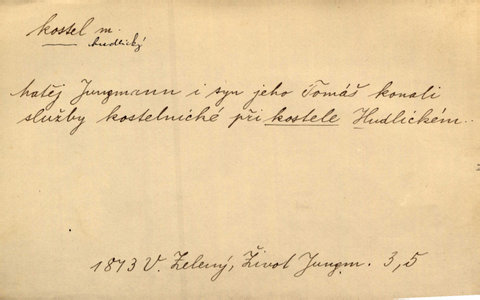 kostel m.
hudlický
Matěj Jungmann i syn jeho Tomáš konali
služby kostelnické při kostele Hudlickém.
1873 V. Zelený, Život Jungm. 3,5